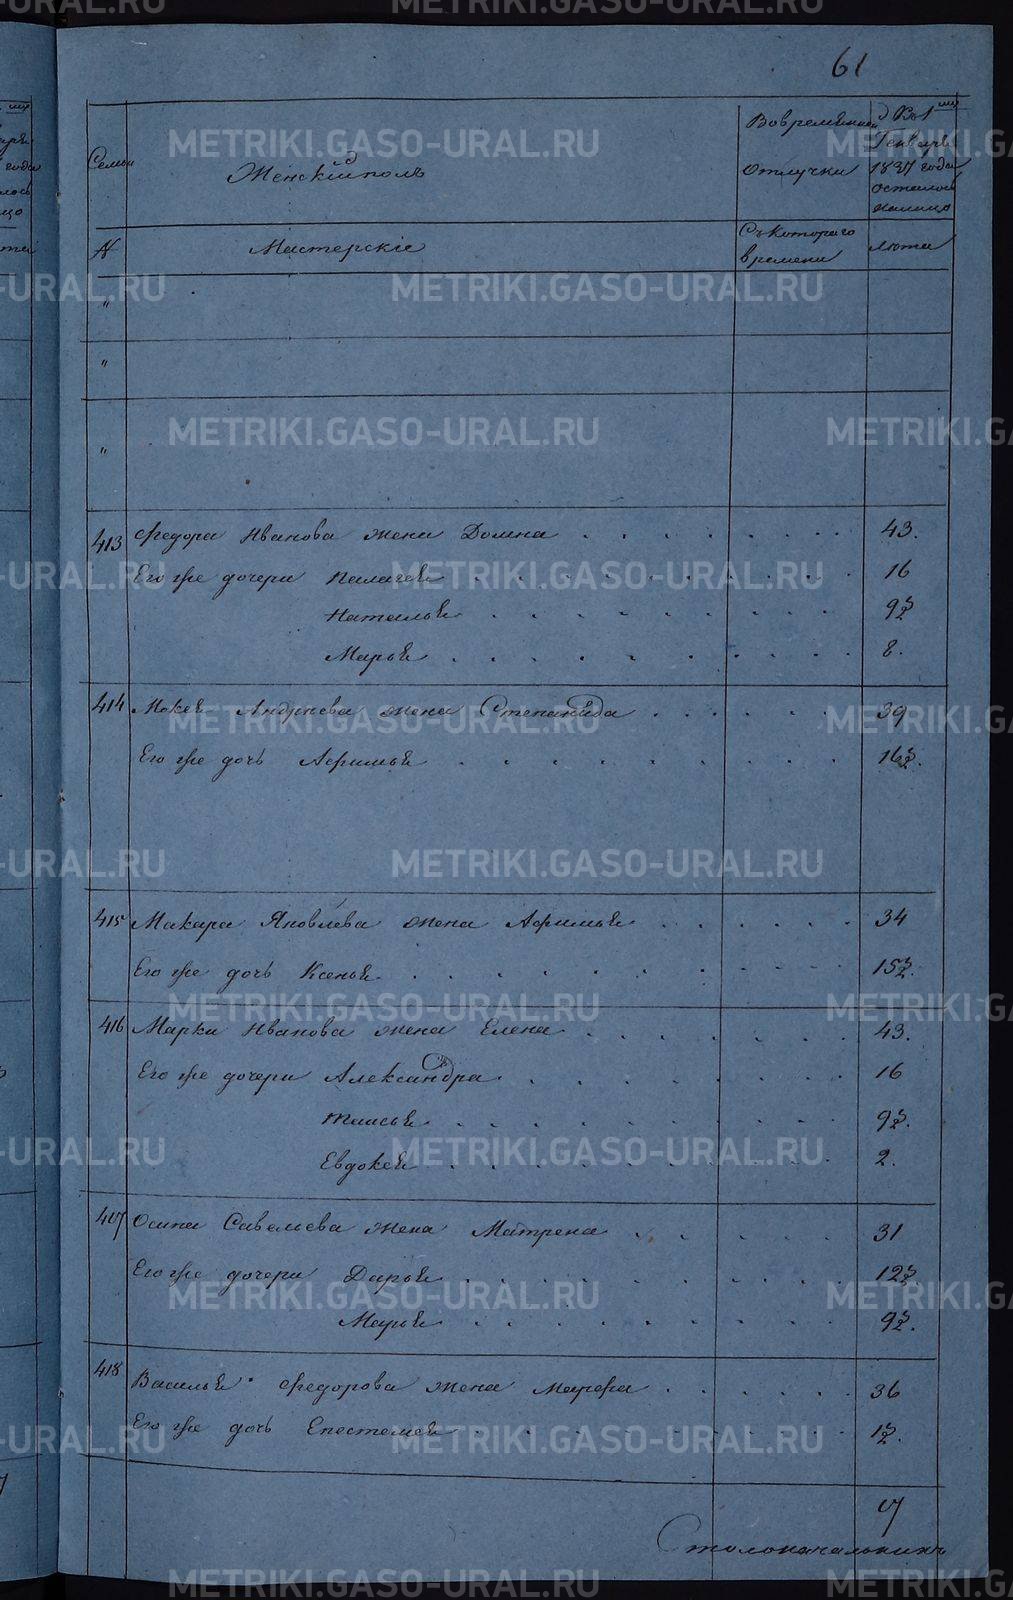 61
Семьи
Женскiй полъ
Во временной отлучки
Въ 1ᵐᵘ Генваря 1837 года осталось налицо
№
Мастерскiе
Съ котораго времени
лѣта
"
"
"
413 Федора Иванова жена Домна . . . . . . . 43.
Его же дочери Палагея . . . . . . . . . 16
Наталья . . . . . . . . . 9½
Марья . . . . . . . . . 8.
414 Мокея Андреева жена Степанида . . . . . 39
Его же дочь Афимья . . . . . . . . . 16½.
415 Макара Яковлева жена Афимья . . . . . 34
Его же дочь Ксенья . . . . . . . . . 15½.
416 Марка Иванова жена Елена . . . . . . 43.
Его же дочери Александра . . . . . . . . 16
Таисья . . . . . . . . . 9½.
Евдокея . . . . . . . . . 2.
417 Осипа Савельева жена Матрена . . . . . 31
Его же дочери Дарья . . . . . . . . . 12½
Марья . . . . . . . . . 9½.
418 Василья Федорова жена Марфа . . . . . . 36
Его же дочь Епестемея . . . . . . . . 1½.
17
Столоначальникъ
METRIKI.GASO-URAL.RU